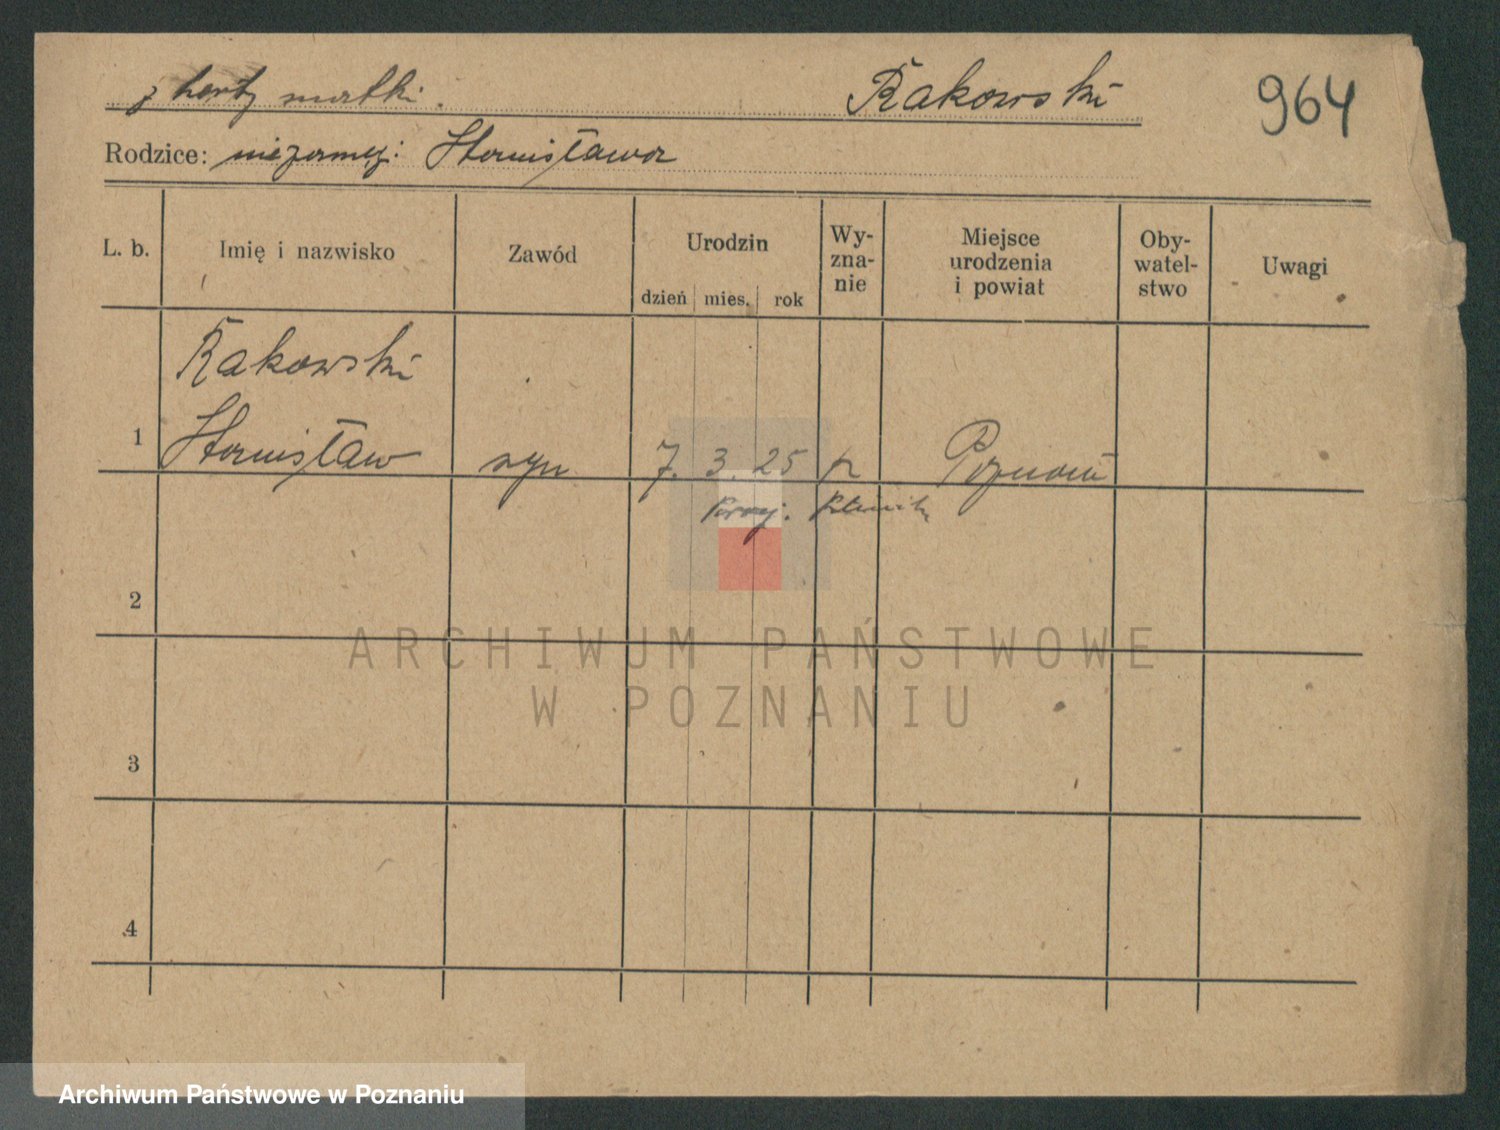 z karty matki. Rakowski 964
Rodzice: niezamęż. Stanisława
L. b. Imię i nazwisko Zawód Urodzin Wy-zna-nie Miejsce urodzenia i powiat Oby-watel-stwo Uwagi
dzień mies. rok
Rakowski
1 Stanisław syn 7. 3. 25 Poznań
2
ARCHIWUM PAŃSTWOWE
W POZNANIU
3
4
Archiwum Państwowe w Poznaniu